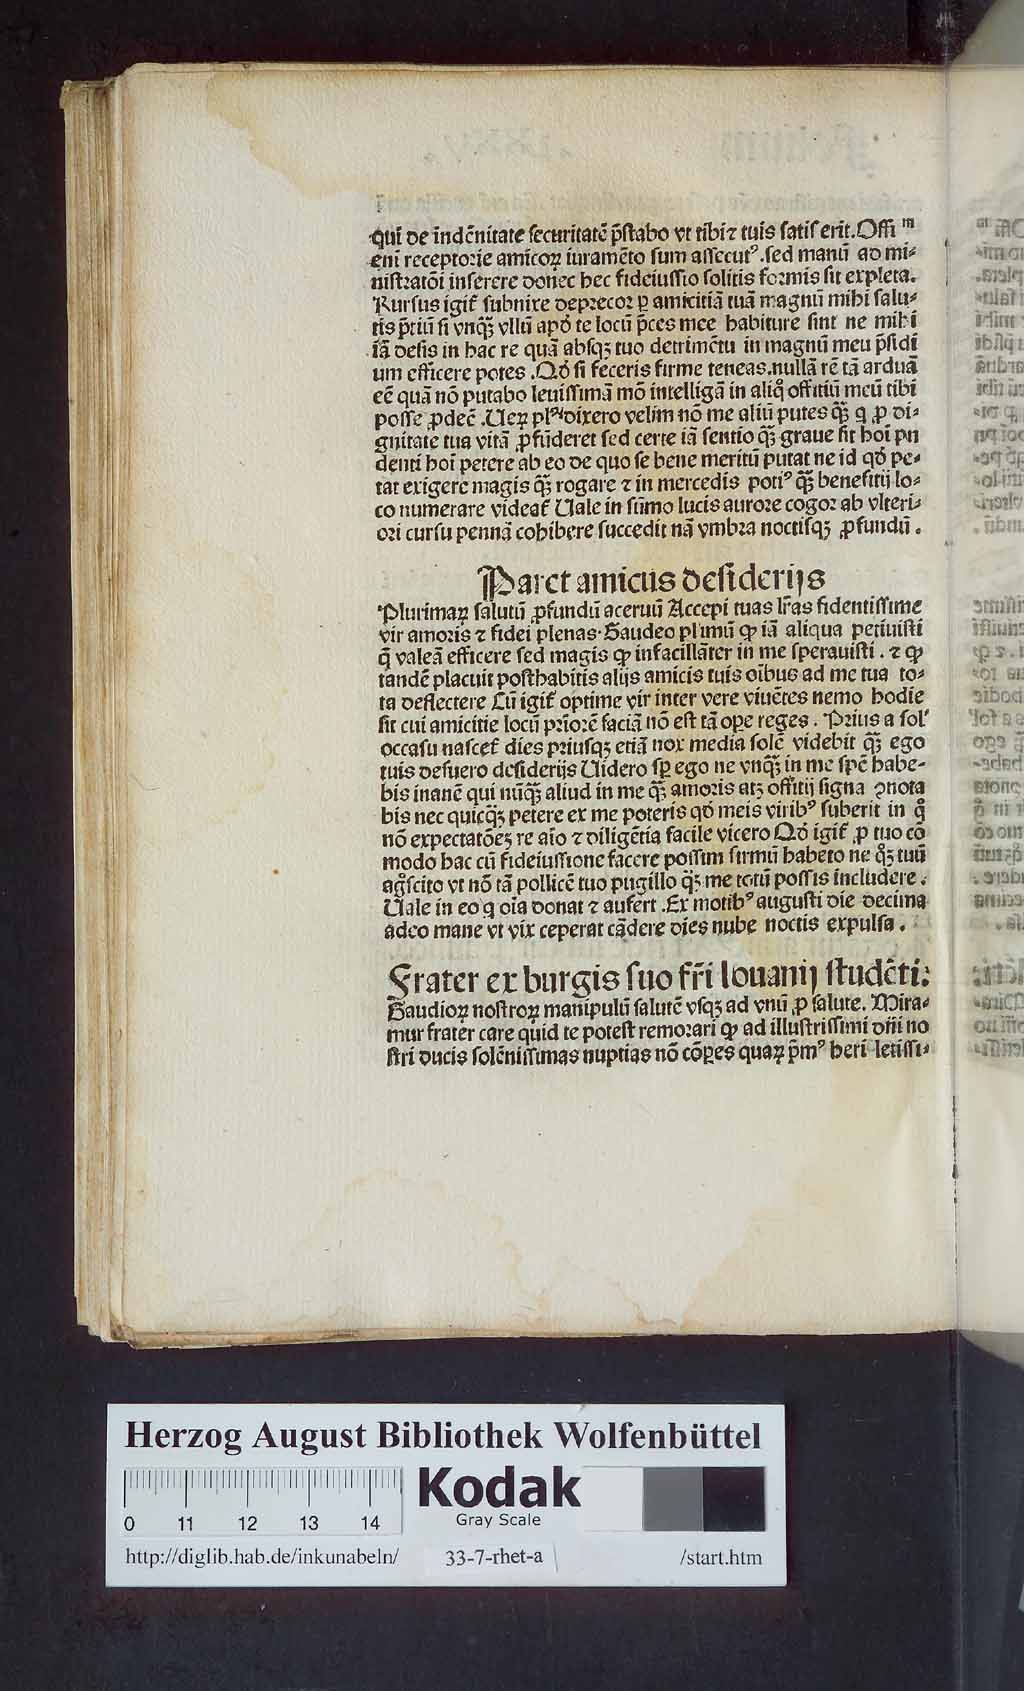 qui de īndēnitate securitatē p̄stabo vt tibi ⁊ tuis satis erit. Offi ᵐ
eni receptorie amicoꝝ iuramēto sum assecutꝰ. sed manū ad mi⸗
nistratōi inserere donec hec fideiussio solitis formis sit expleta.
Rursus igit̄ subnixe deprecor ꝑ amicitiā tuā magnū mihi salu⸗
tis p̄tiū si vnqꝫ vllū apd̄ te locū p̄ces mee habiture sint ne mihi
iā desis in hac re quā absqꝫ tuo detrimētu in magnū meu p̄sidi
um efficere potes. Qd̄ si feceris firme teneas. nullā rē tā arduā
eē quā nō putabo leuissimā mō intelligā in aliq̊ offitiū meū tibi
posse ꝓdeē. Ueꝝ plᵃ dixero velim nō me aliū putes qꝫ̄ q ꝓ di⸗
gnitate tua vitā ꝓfūderet sed certe iā sentio qꝫ̄ graue sit hoi pn
denti hoi petere ab eo de quo se bene meritū putat ne id qd̄ pe⸗
tat exigere magis qꝫ̄ rogare ⁊ in mercedis potiꝰ qꝫ̄ benefitij lo⸗
co numerare videat̄ Uale in sūmo lucis aurore cogor ab vlteri⸗
ori cursu pennā cohibere succedit nā vmbra noctisqꝫ ꝓfundū.
Paret amicus desiderijs
Plurimaꝝ salutū ꝓfundū aceruū Accepi tuas lr̄as fidentissime
vir amoris ⁊ fidei plenas. Gaudeo plimū ꝙ iā aliqua petiuisti
q̄ valeā efficere sed magis ꝙ infacillāter in me sperauisti. ⁊ ꝙ
tandē placuit posthabitis alijs amicis tuis oībus ad me tua to⸗
ta deflectere Cū igit̄ optime vir inter vere viuētes nemo hodie
sit cui amicitie locū priorē faciā nō est tā oꝑe reges. Prius a solˢ
occasu nascet̄ dies priusqꝫ etiā nox media solē videbit qꝫ̄ ego
tuis desuero desiderijs Uidero sꝑ ego ne vnqꝫ̄ in me spē habe⸗
bis inanē qui nūqꝫ̄ aliud in me qꝫ̄ amoris atꝫ offitij signa ꝯnota
bis nec quicqꝫ̄ petere ex me poteris qd̄ meis viribꝰ suberit in q̊
nō expectatōeꝫ re aīo ⁊ diligētia facile vicero Qd̄ igit̄ ꝓ tuo cō
modo hac cū fideiussione facere possim firmū habeto ne qꝫ̊ tuū
ag̊scito vt nō tā pollicē tuo pugillo qꝫ̄ me totū possis includere.
Uale in eo q oīa donat ⁊ aufert. Ex motibꝰ augusti die decima
adeo mane vt vix ceperat cādere dies nube noctis expulsa.
Frater ex burgis suo fr̄i louanij studēti:
Gaudioꝝ nostroꝝ manipulū salutē vsqꝫ ad vnū ꝓ salute. Mira⸗
mur frater care quid te potest remorari ꝙ ad illustrissimi dn̄i no
stri ducis solēnissimas nuptias nō cōꝑes quaꝝ p̄mꝰ heri letissi⸗
Herzog August Bibliothek Wolfenbüttel
0 11 12 13 14
Kodak
Gray Scale
http://diglib.hab.de/inkunabeln/ 33-7-rhet-a /start.htm